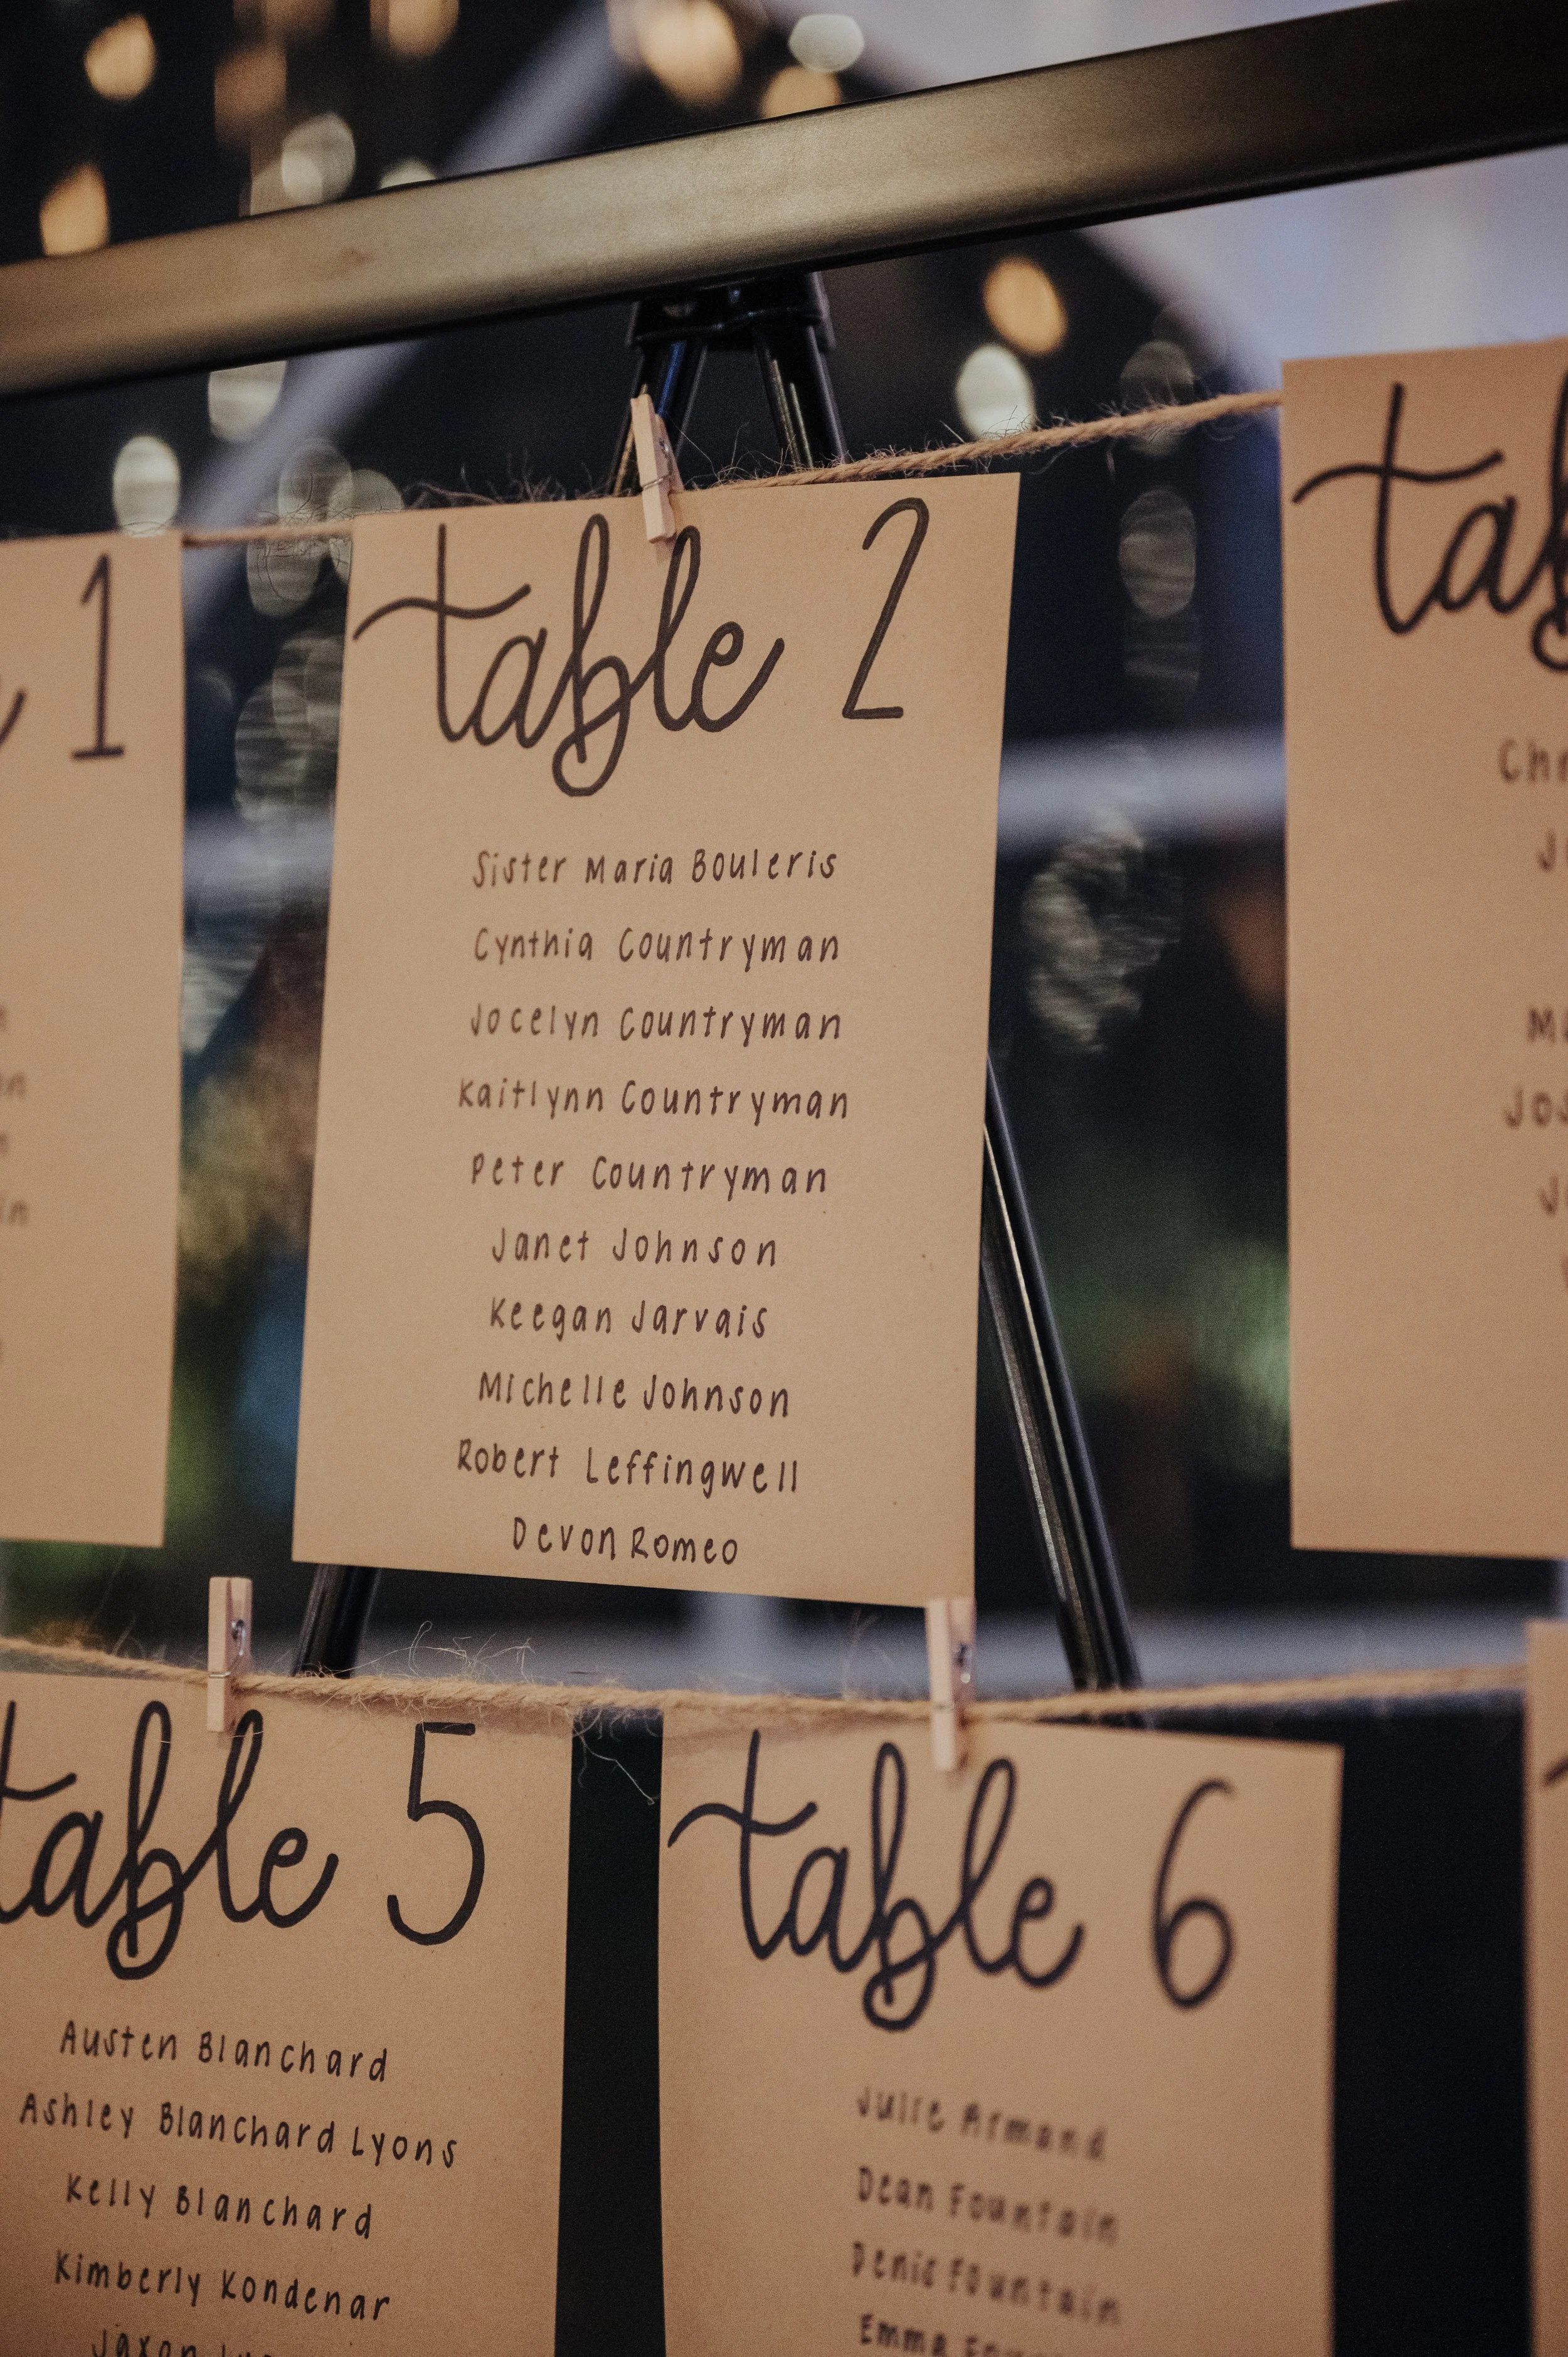 1
table 2
Sister Maria Bouleris
Cynthia Countryman
Jocelyn Countryman
Kaitlynn Countryman
Peter Countryman
Janet Johnson
Keegan Jarvais
Michelle Johnson
Robert Leffingwell
Devon Romeo
table 5
Austen Blanchard
Ashley Blanchard Lyons
Kelly Blanchard
Kimberly Kondenar
Jaxon
table 6
Julie Armand
Dean Fountain
Denis Fountain
Emma